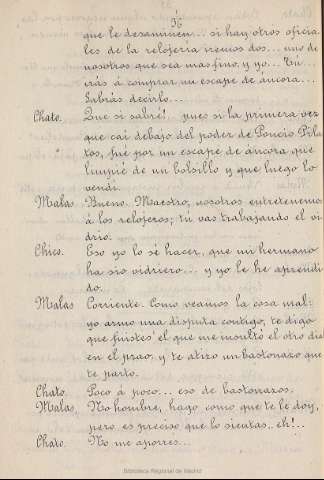 36
que le desaminen... si hay otros oficia
les de la relojería iremos dos... uno de
nosotros que sea mas fino, y yo... Tú...
irás á comprar un escape de áncora...
Sabrás decirlo...
Chato. Que si sabré!.. pues si la primera vez
que caí debajo del poder de Poncio Pila
tos, fué por un escape de áncora que
limpié de un bolsillo y que luego lo
vendí.
Malas. Bueno. Maestro, nosotros entretenemos
á los relojeros; tú vas trabajando el vi
drio.
Chico. Eso yo lo sé hacer, que mi hermano
ha sío vidriero... y yo le he aprendi
do.
Malas Corriente. Como veamos la cosa mal:
yo armo una disputa contigo, te digo
que fuistes el que me insultó el otro dia
en el prao, y te atizo un bastonazo que
te parto.
Chato. Poco á poco... eso de bastonazos.
Malas. No hombre, hago como que te le doy,
pero es preciso que lo sientas, eh!..
Chato. No me aporres...
Biblioteca Regional de Madrid